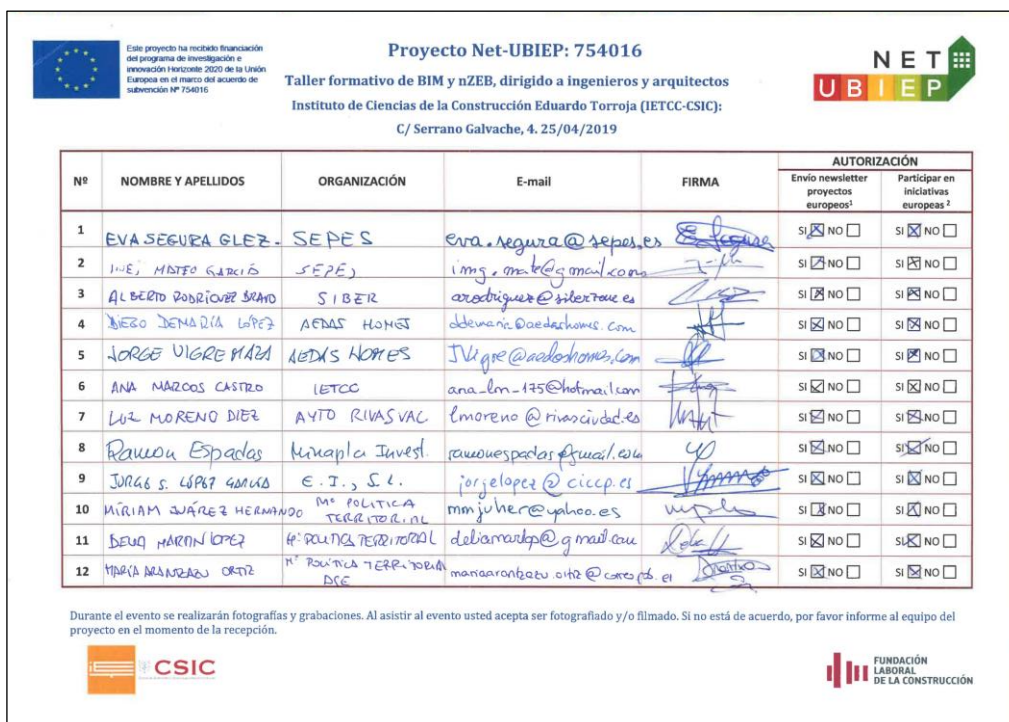 Este proyecto ha recibido financiación
del programa de investigación e
innovación Horizonte 2020 de la Unión
Europea en el marco del acuerdo de
subvención Nº 754016
Proyecto Net-UBIEP: 754016
Taller formativo de BIM y nZEB, dirigido a ingenieros y arquitectos
Instituto de Ciencias de la Construcción Eduardo Torroja (IETCC-CSIC):
C/ Serrano Galvache, 4. 25/04/2019
NET
UBIEP
AUTORIZACIÓN
Nº NOMBRE Y APELLIDOS ORGANIZACIÓN E-mail FIRMA Envío newsletter proyectos europeos¹ Participar en iniciativas europeas ²
1 EVA SEGURA GLEZ. SEPES eva.segura@sepes.es SI NO SI NO
2 MATEO GARCÍA SEPES SI NO SI NO
3 ALBERTO RODRÍGUEZ BRAVO SIBER arodriguez@siberzone.es SI NO SI NO
4 DIEGO DEMARÍA LÓPEZ AEDAS HOMES ddemaria@aedashomes.com SI NO SI NO
5 JORGE VIGRE MAZA AEDAS HOMES JVigre@aedashomes.com SI NO SI NO
6 ANA MARCOS CASTRO IETCC ana_lm_175@hotmail.com SI NO SI NO
7 LUZ MORENO DIEZ AYTO RIVAS VAC lmoreno@rivasciudad.es SI NO SI NO
8 Ramon Espadas Minapla Invest. ramonespadas@gmail.com SI NO SI NO
9 JORGE S. LÓPEZ GARCÍA E.I., S.L. jorjelopez@ciccp.es SI NO SI NO
10 MIRIAM JUÁREZ HERNANDO Mº POLITICA TERRITORIAL mmjuher@yahoo.es SI NO SI NO
11 DELIA MARTIN LOPEZ Mº POLITICA TERRITORIAL deliamarlop@gmail.com SI NO SI NO
12 MARÍA ARANZAZU ORTIZ Mº POLÍTICA TERRITORIAL SI NO SI NO
Durante el evento se realizarán fotografías y grabaciones. Al asistir al evento usted acepta ser fotografiado y/o filmado. Si no está de acuerdo, por favor informe al equipo del
proyecto en el momento de la recepción.
CSIC
FUNDACIÓN
LABORAL
DE LA CONSTRUCCIÓN